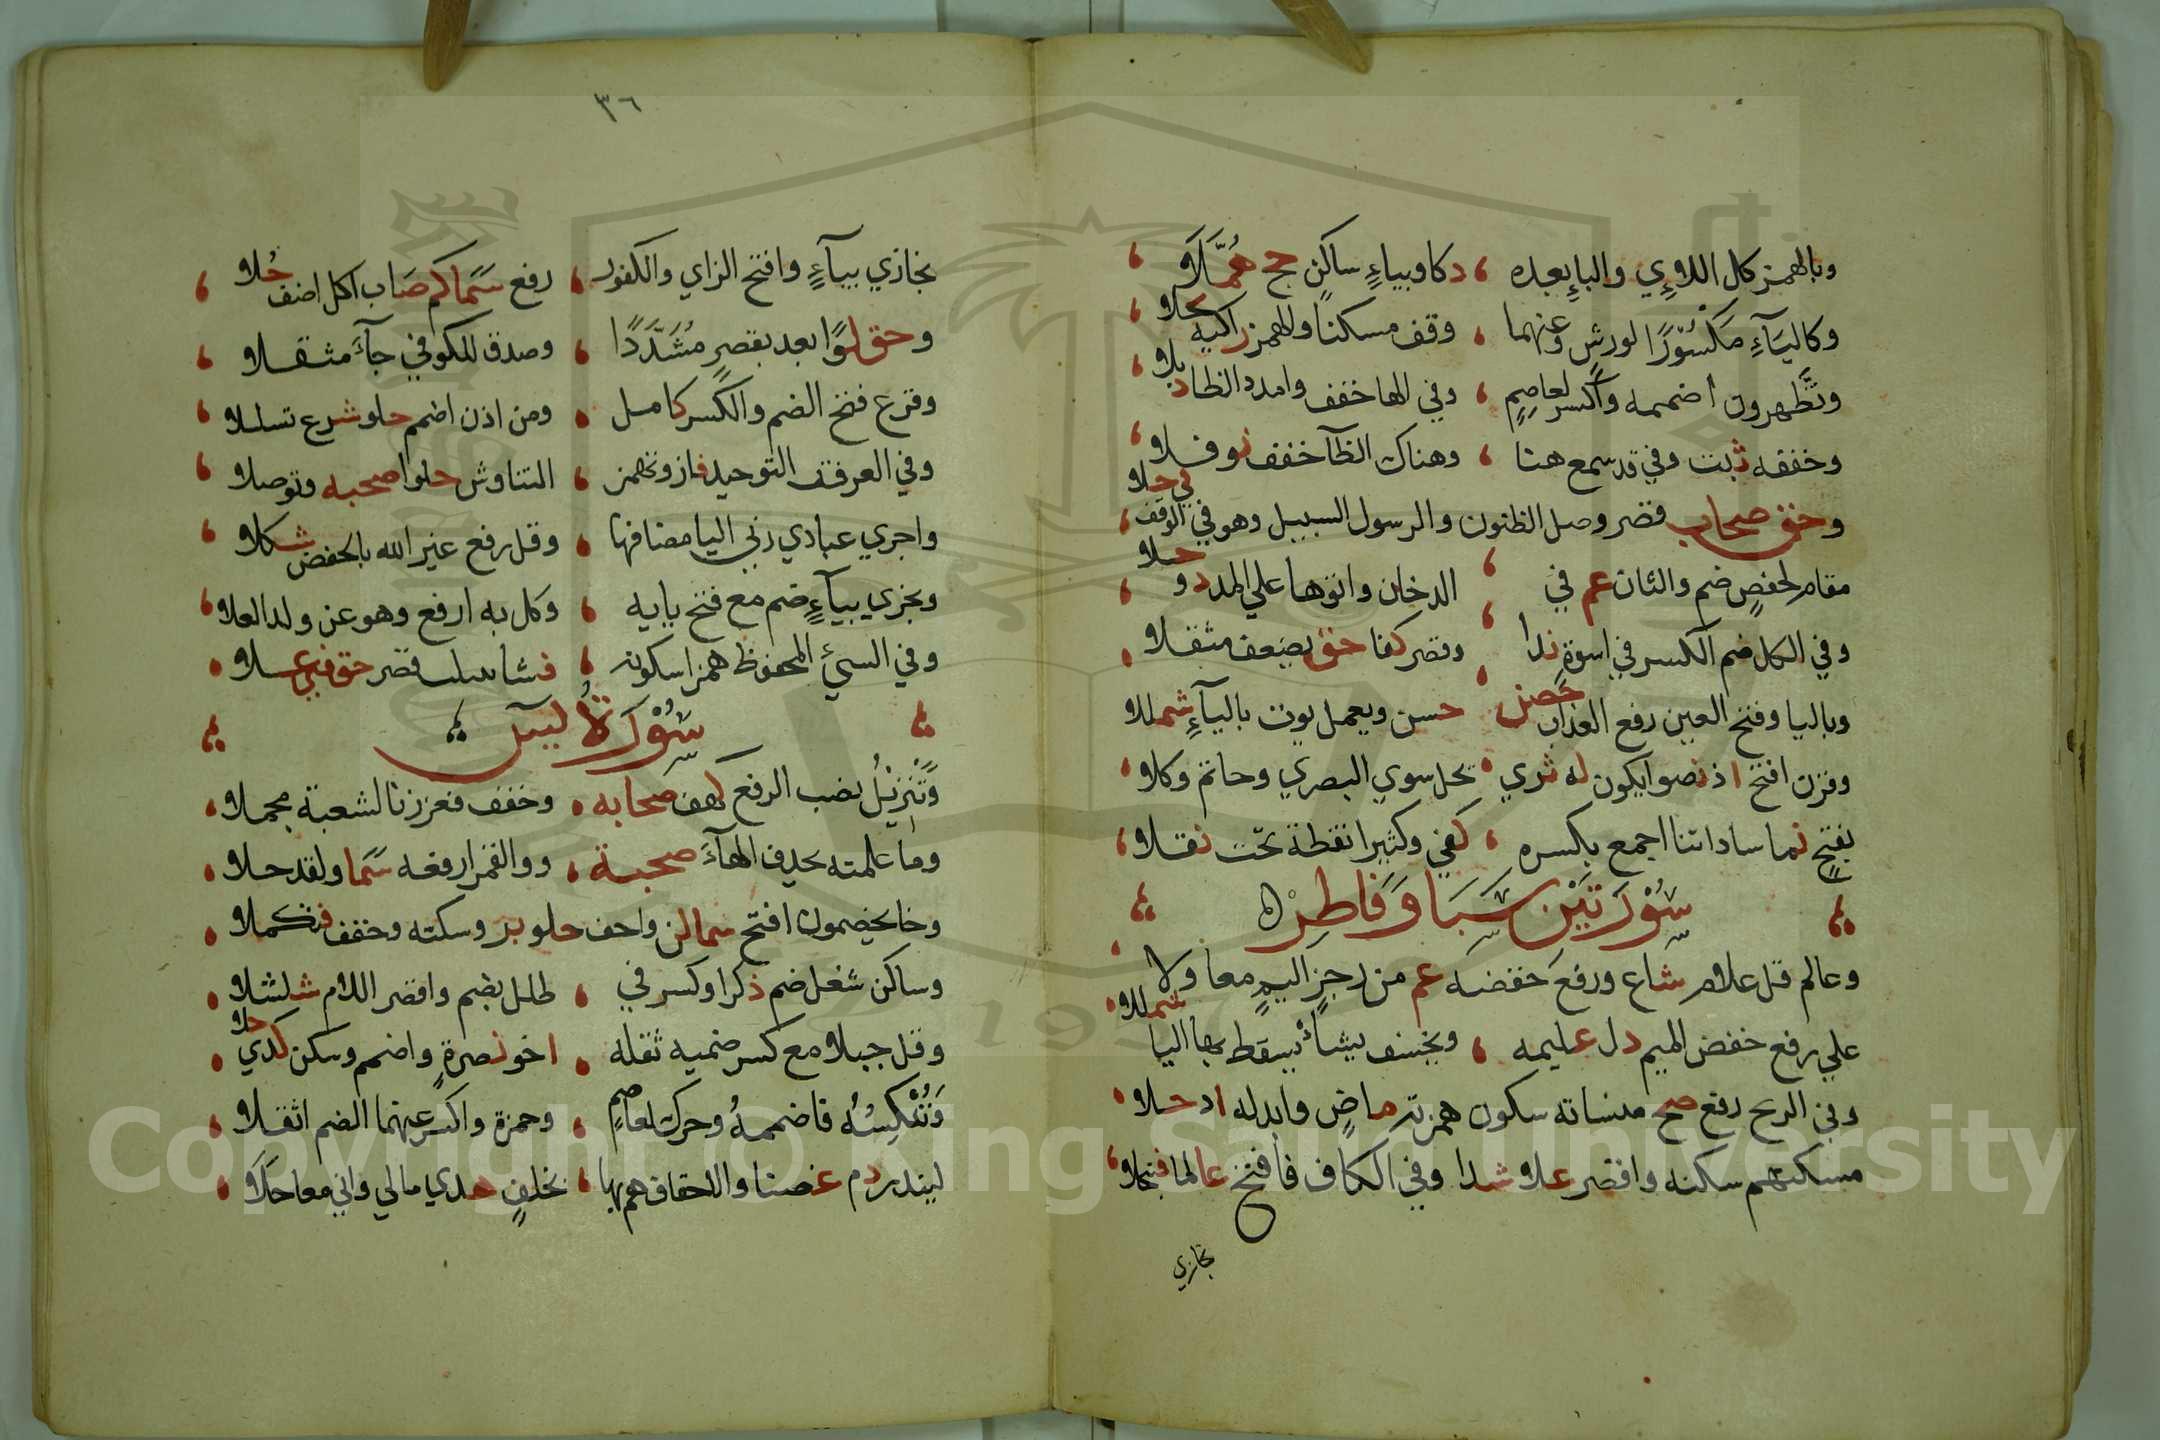 وبالهمز كل اللاءِي والياءِ بعده ، ذكا وبياءٍ ساكن حج هُمَّلَا
وكالياءِ مكسورًا لورش وعنهما ، وقف مسكنا والهمز زاكيه بجلا
وتَظَّهرون اضممه واكسر لعاصمٍ ، وفي الها خفف وامدد الظا ذبلا
وخففه ثبت وفي قد سمع هنا ، وهناك الظآ خفف نوفلا
وحق صحاب قصر وصل الظنون والرسول السبيل وهو في الوقف في حلا
مقام لحفصٍ ضم والثان عم في ، الدخان واتوها علي المد ذو حلا
وفي الكل ضم الكسر في اسوة ندا ، وقصر كفا حق يضعف مثقلا
وباليا وفتح العين رفع العذاب حصن حسن ويعمل يوت بالياءِ شمللا
وقرن افتح اذ نصوا يكون له ثري ، يحل سوي البصري وخاتم وكلا
بفتحٍ نما ساداتنا اجمع بكسره ، كفي وكثيرا نقطة تحت نفلا
سُوْرَتَيْن سَبَا وَفَاطِر
وعالم قل علام شاع ورفع خفضه عم من رجز اليمٍ معا ولا
علي رفع خفض الميم دل عليمه ، ويخسف يشأ يسقط بها اليا شمللا
وفي الريح رفع صح منساته سكون همزته ماضٍ وابدله اذ حلا
مسكنهم سكنه واقصر علا شذا وفي الكاف فافتح عالما فتبجلا
نجازي
٣٦
نجازي بيآءٍ وافتح الزاي والكفور ، رفع سَمَا كم صَاب اكل اضف حُلا
وحق لوًا بعد بقصرٍ مُشَدَّدًا ، وصدق للكوفي جآءَ مثقلا
وفزع فتح الضم والكسر كامل ، ومن اذن اضمم حلو شرع تسلسلا
وفي العرفة التوحيد فاز وتهمز ، التناوش حلوا صحبه وتوصلا
واجري عبادي ربي اليا مضافها ، وقل رفع غير الله بالخفض شكلا
ونجزي بيآءٍ ضم مع فتح يايه ، وكل به ارفع وهو عن ولد العلا
وفي السيئ المخفوظ همزا سكونه ، فشا بينات قصر حق فتي علا
سُوْرَةُ يسٓ
وَتَنْزِيْلُ نصب الرفع كهف صحابه ، وخفف فعززنا لشعبة مجملا
وما علمته يحذف الهآءَ صحبة ، ووالقمر ارفعه سَمَا ولقد حلا
وخا يخصمون افتح سما لذ واخف حلو بر وسكنه وخفف فتكملا
وساكن شغل ضم ذكرا وكسر في ، ظلل بضم واقصر اللام شلشلا
وقل جبلا مع كسر ضميه ثقله ، اخو نصرةٍ واضمم وسكن كذي حلا
وَنُنْكِسْهُ فاضممهُ وحرك لعاصمٍ ، وحمزة واكسر عنهما الضم اثقلا
لينذر دم غصنا والاحقاف هم بها ، بخلفٍ هدي مالي واني معا حَلَا